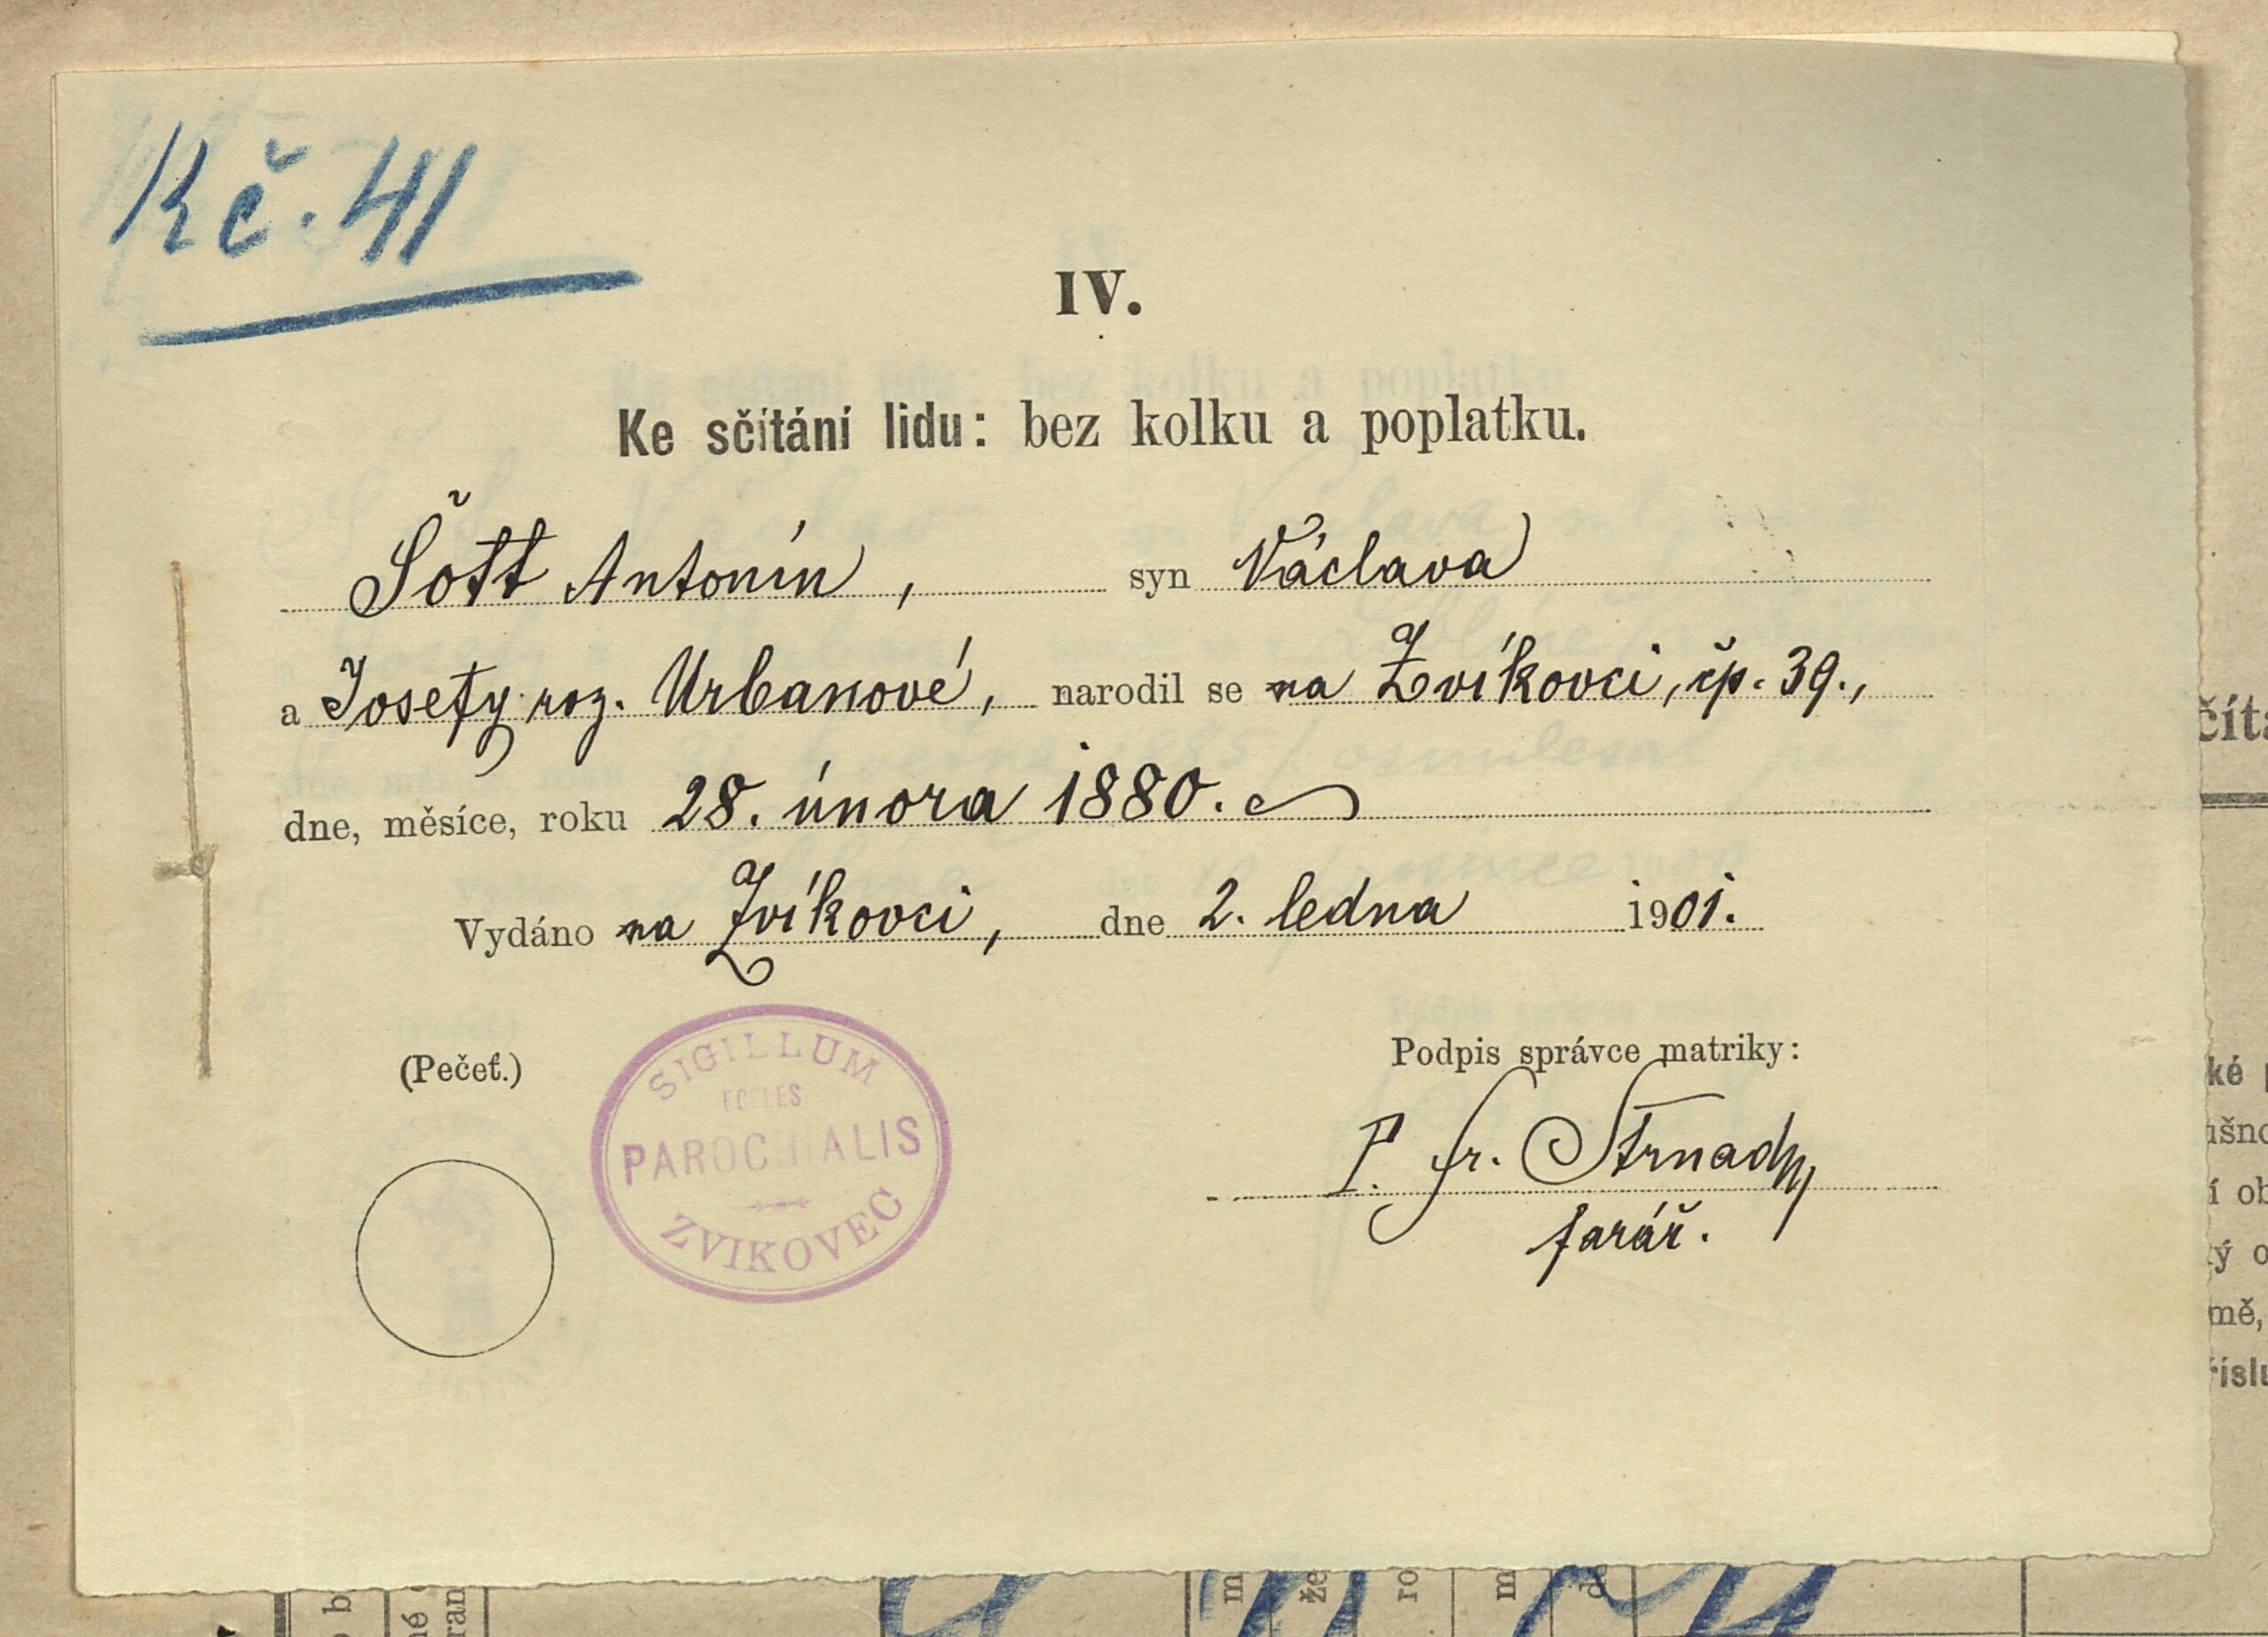 Kč. 41
IV.
Ke sčítání lidu: bez kolku a poplatku.
Šott Antonín, syn Václava
a Josefy roz. Urbanové, narodil se na Zvíkovci, čp. 39.,
dne, měsíce, roku 28. února 1880.
Vydáno na Zvíkovci, dne 2. ledna 1901.
(Pečeť.)
SIGILLUM
ECCLES
PAROCHIALIS
ZVIKOVEC
Podpis správce matriky:
P. Fr. Strnad,
farář.